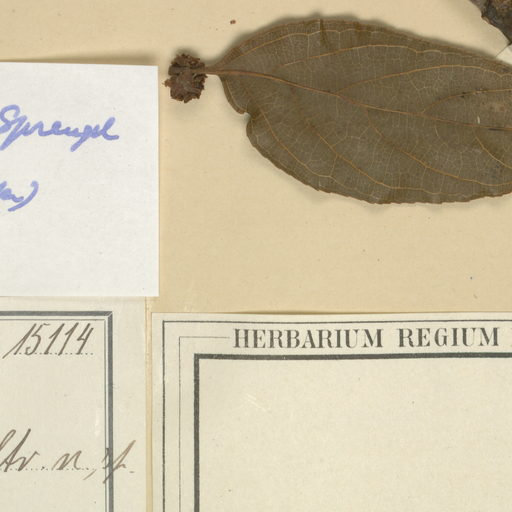 Sprengel
15114
HERBARIUM REGIUM
n. sp.